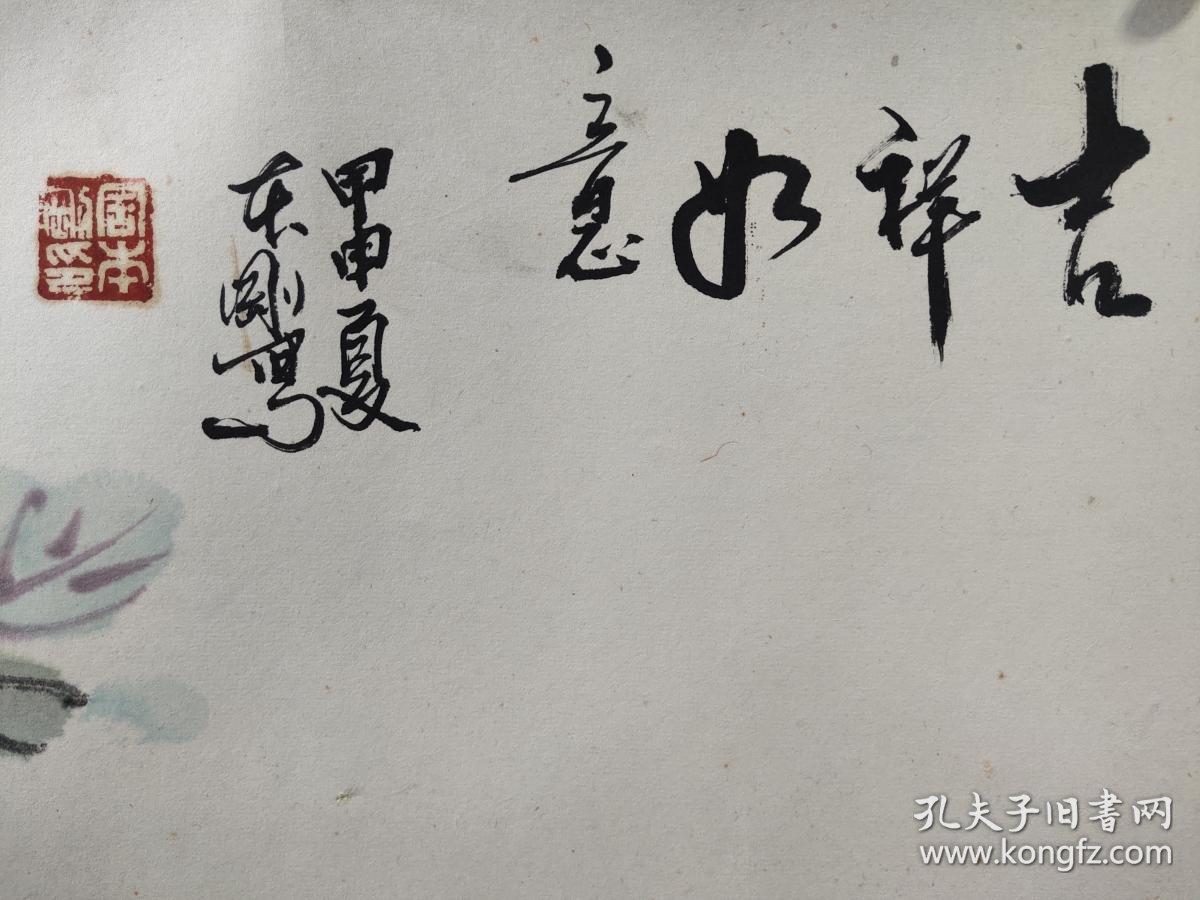 吉祥如意
甲申夏
本刚写
孔夫子旧書网
www.kongfz.com